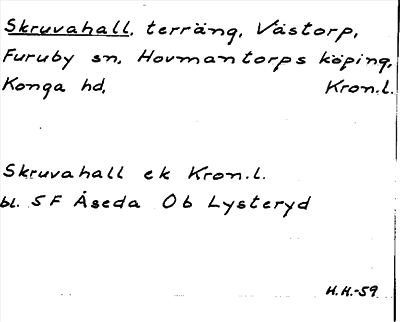 Skruvahall, terräng, Västorp,
Furuby sn, Hovmantorps köping,
Konga hd, Kron.l.
Skruvahall ek Kron.l.
bl. 5F Åseda Ob Lysteryd
H.H.-59